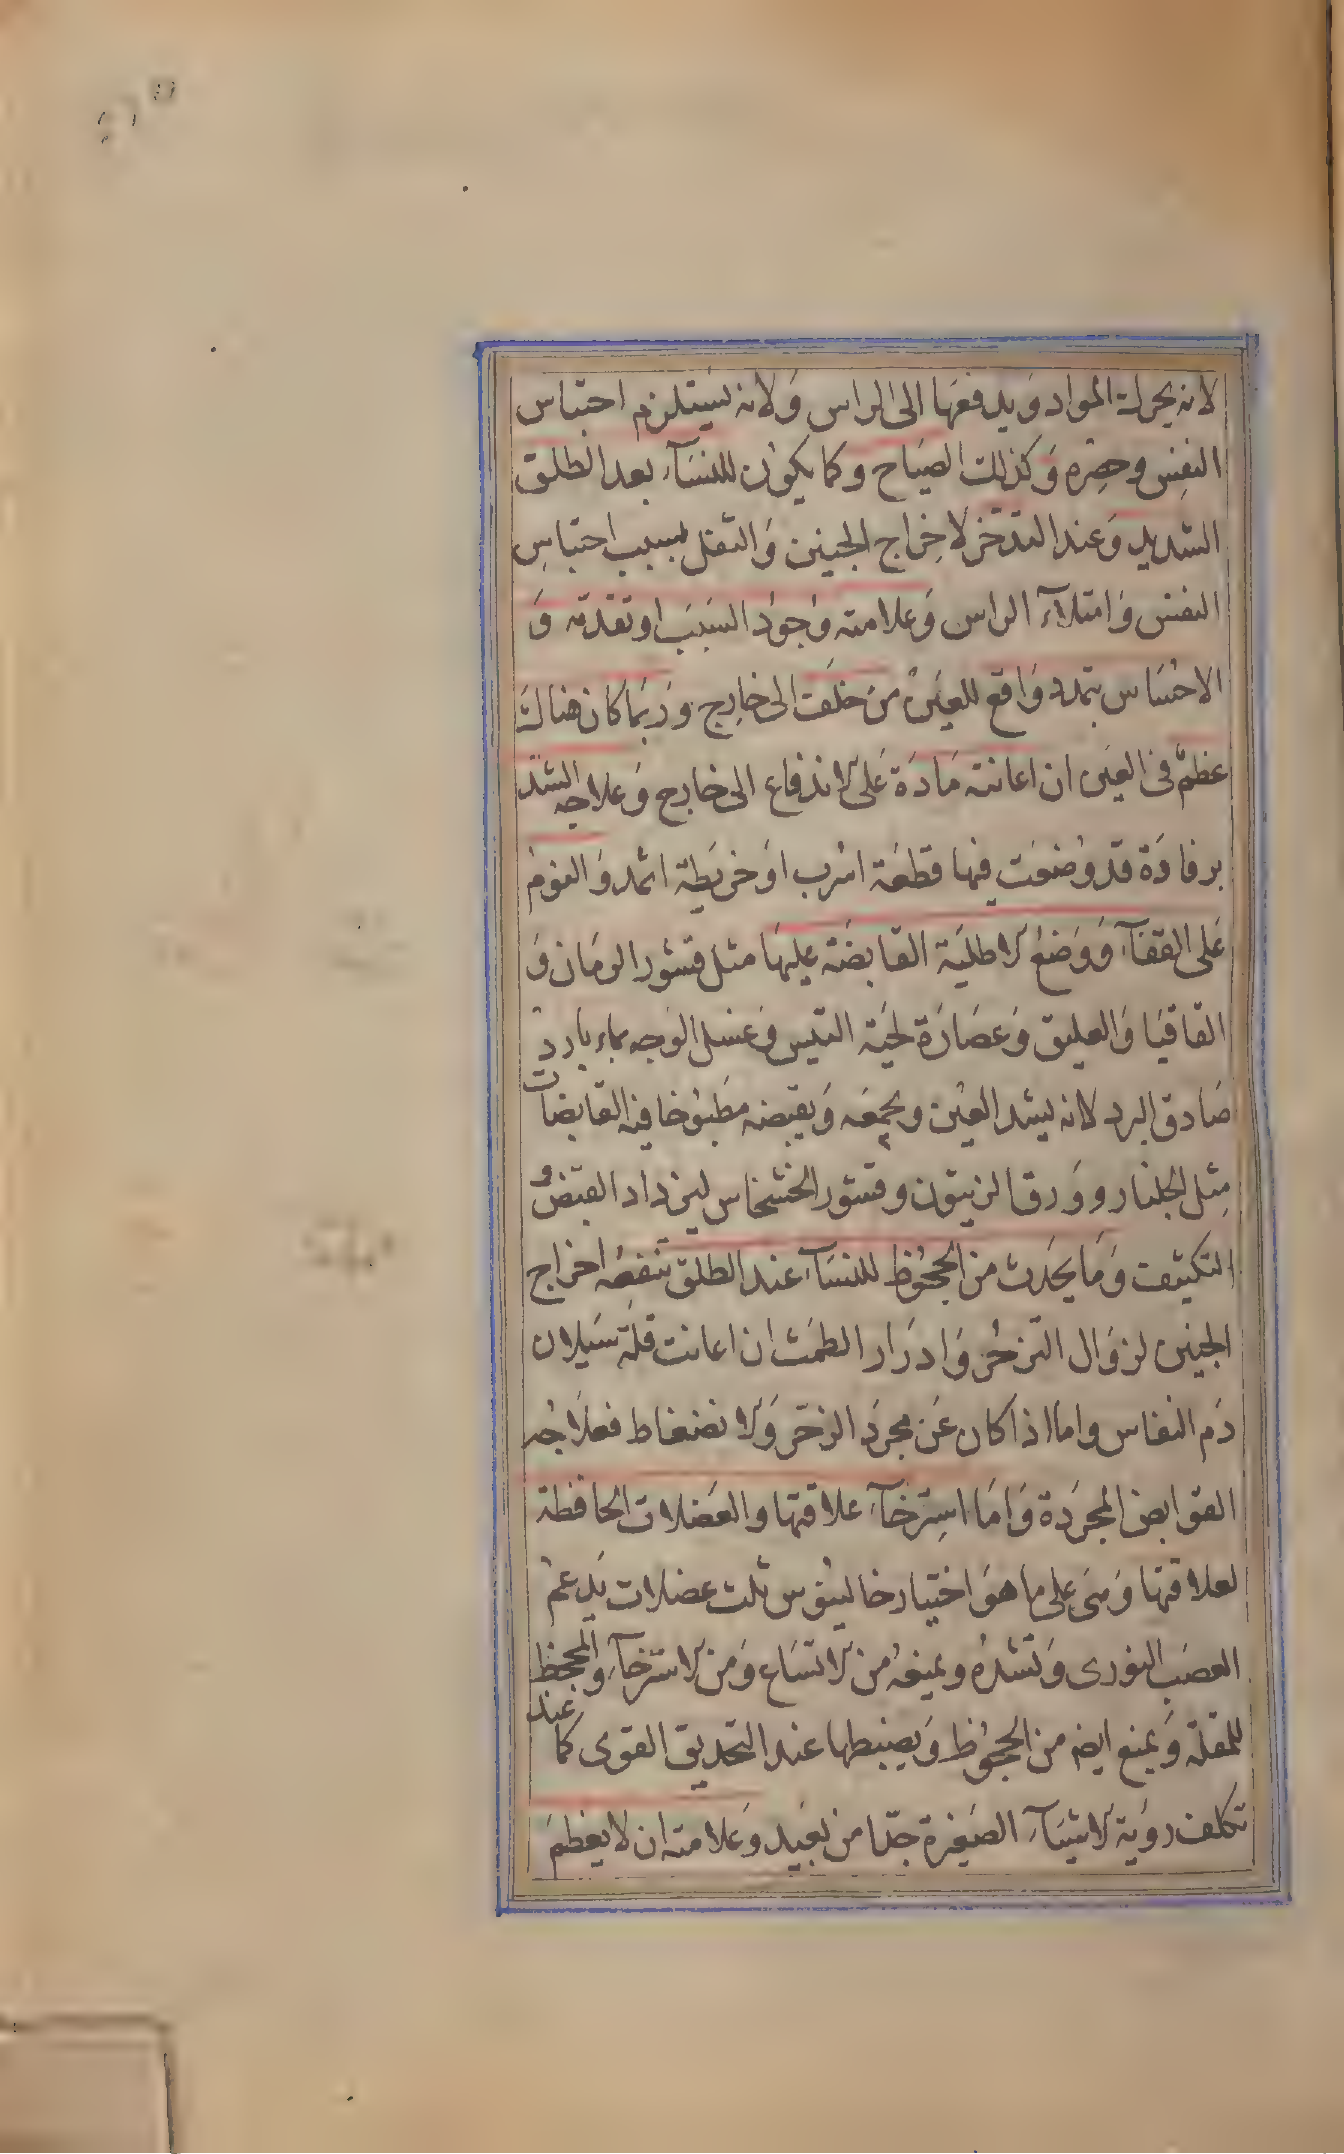 لانه يحرك المواد وَيدفعهَا الى الراس وَلانه يستلزم احتباس
النفس وحصره وَكذلك الصيَاح وكما يكون للنسَآء بعد الطلق
الشديد وَعند التزحّر لاخِراج الجنين وَالثقل بسبب احتباسِ
النفس وَامتلآء الراس وَعلامته وجود السَبَب او تقدّمه وَ
الاحسَاس بتمدد وَاقع للعيَن منَ خلَف الى خارِج وَربَما كان هناك
عظمٌ فى العين ان اعانته مَادَة عَلى الاندفاع الى خارج وَعلاجه الشدّ
برفادَة قد وُضعَت فيها قطعَة اسْرب اوَ خريَطة اثمد وَالنومُ
عَلى القفآء وَوَضعُ الاطليَة القابضَة عليهَا مثل قشور الرمَان وَ
القاقيَا وَالعليق وَعصَارَة لحيَة التيس وَغسل الوَجه بماء بَارد
صَادق البرد لانه يشد العيْن ويجمعَه وَيقبضه مطَبوُخا فيه القابضات
مِثل الجلنار ووَرق الزيتون وقشور الخشخاس ليزداد القبض و
التكثيف وَمَا يحَدث من الجحُوُظ للنسَآء عند الطلق تنفعهُ اخراج
الجنين لزوَال التزحُر وَادرَار الطمَث ان اعانت قلّة سَيلان
دَم النفاس واما اذا كان عَن مجردَ الزحَر وَالانضغاط فعلاَجُه
القوابض المجرَدة وَامَا اسِترَخآء علاقتها والعَضلات الحافظة
لعلاقتها وَهىَ على ما هوَ اختيار جالينوس ثلث عضلات يَدعمُ
العصَب النورى وَتشدُه ويمنعهُ من الاتسَاع وَمن الاسترخآء والمجحظ
للمقلة وَيمنع ايضا من الجحُوُظ وَيضبطها عند التحديق القوى كما عند
تكلف روَية الاشيَآء الصغيرَة جدّا من بَعيد وَعَلامته ان لا يعَظم